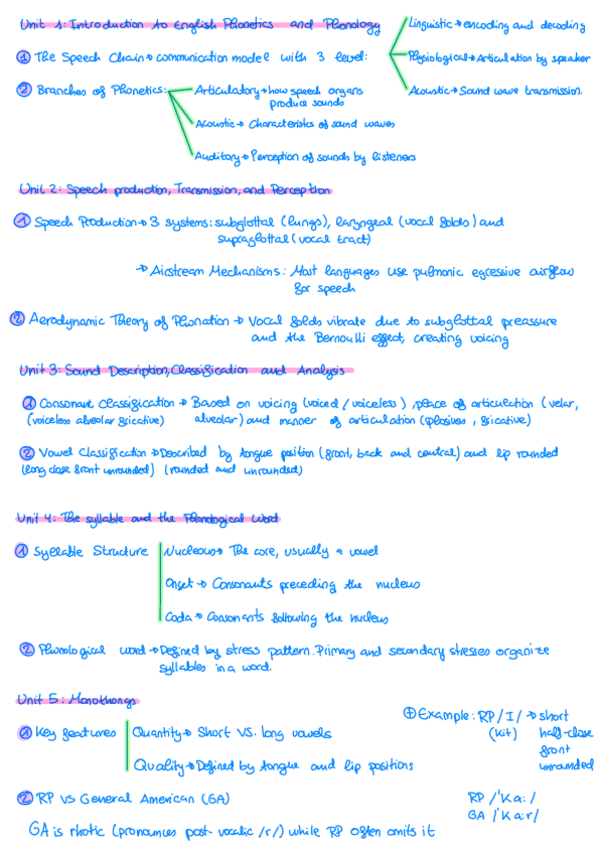 Unit 1: Introduction to English Phonetics and Phonology
Linguistic → encoding and decoding
① The Speech Chain → communication model with 3 level:
Physiological → Articulation by speaker
Acoustic → Sound wave transmission.
② Branches of Phonetics:
Articulatory → how speech organs
produce sounds
Acoustic → Characteristics of sound waves
Auditory → Perception of sounds by listeners
Unit 2: Speech production, Transmission, and Perception
① Speech Production → 3 systems: subglottal (lungs), laryngeal (vocal folds) and
supraglottal (vocal tract)
→ Airstream Mechanisms: Most languages use pulmonic egressive airflow
for speech
② Aerodynamic Theory of Phonation → Vocal folds vibrate due to subglottal preassure
and the Bernoulli effect, creating voicing
Unit 3: Sound Description, Classification and Analysis
① Consonant Classification → Based on voicing (voiced/voiceless), place of articulation (velar,
(voiceless alveolar fricative) alveolar) and manner of articulation (plosives, fricative)
② Vowel Classification → Described by tongue position (front, back and central) and lip rounded
(long close front unrounded) (rounded and unrounded)
Unit 4: The syllable and the Phonological Word
① Syllable Structure
Nucleous → The core, usually a vowel
Onset → Consonants preceding the nucleus
Coda → Consonants following the nucleus
② Phonological word → Defined by stress pattern. Primary and secondary stresses organize
syllables in a word.
Unit 5: Monothongs
① Key features
Quantity → Short VS. long vowels
Quality → Defined by tongue and lip positions
⊕ Example: RP /I/ → short
(kit) half-close
front
unrounded
② RP VS General American (GA)
RP /ˈka:/
GA /ˈka:r/
GA is rhotic (pronounces post-vocalic /r/) while RP often omits it